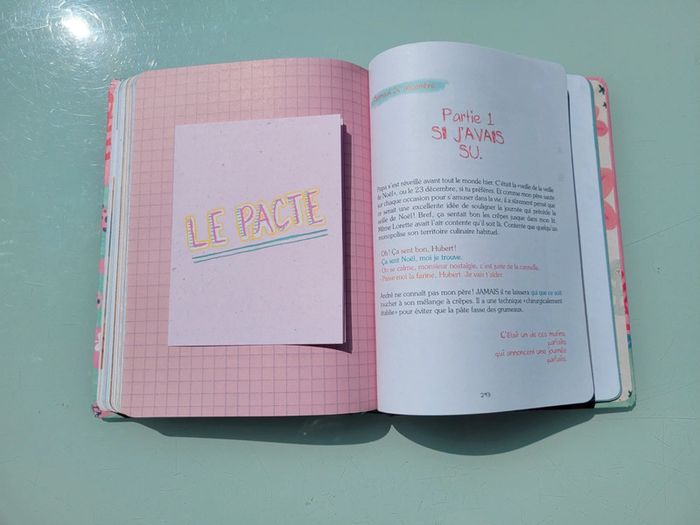 LE PACTE
Samedi 24 décembre
Partie 1
SI J'AVAIS
SU.
Papa s'est réveillé avant tout le monde hier. C'était la «veille de la veille
de Noël», ou le 23 décembre, si tu préfères. Et comme mon père saute
sur chaque occasion pour s'amuser dans la vie, il a sûrement pensé que
ce serait une excellente idée de souligner la journée qui précède la
veille de Noël! Bref, ça sentait bon les crêpes jusque dans mon lit.
Mème Lorette avait l'air contente qu'il soit là. Contente que quelqu'un
monopolise son territoire culinaire habituel.
- Oh! Ça sent bon, Hubert!
- Ça sent Noël, moi je trouve.
- On se calme, monsieur nostalgie, c'est juste de la cannelle.
- Passe-moi la farine, Hubert. Je vais t'aider.
André ne connaît pas mon père! JAMAIS il ne laissera qui que ce soit
toucher à son mélange à crêpes. Il a une technique «chirurgicalement
établie» pour éviter que la pâte fasse des grumeaux.
C'était un de ces matins
parfaits
qui annoncent une journée
parfaite.
293